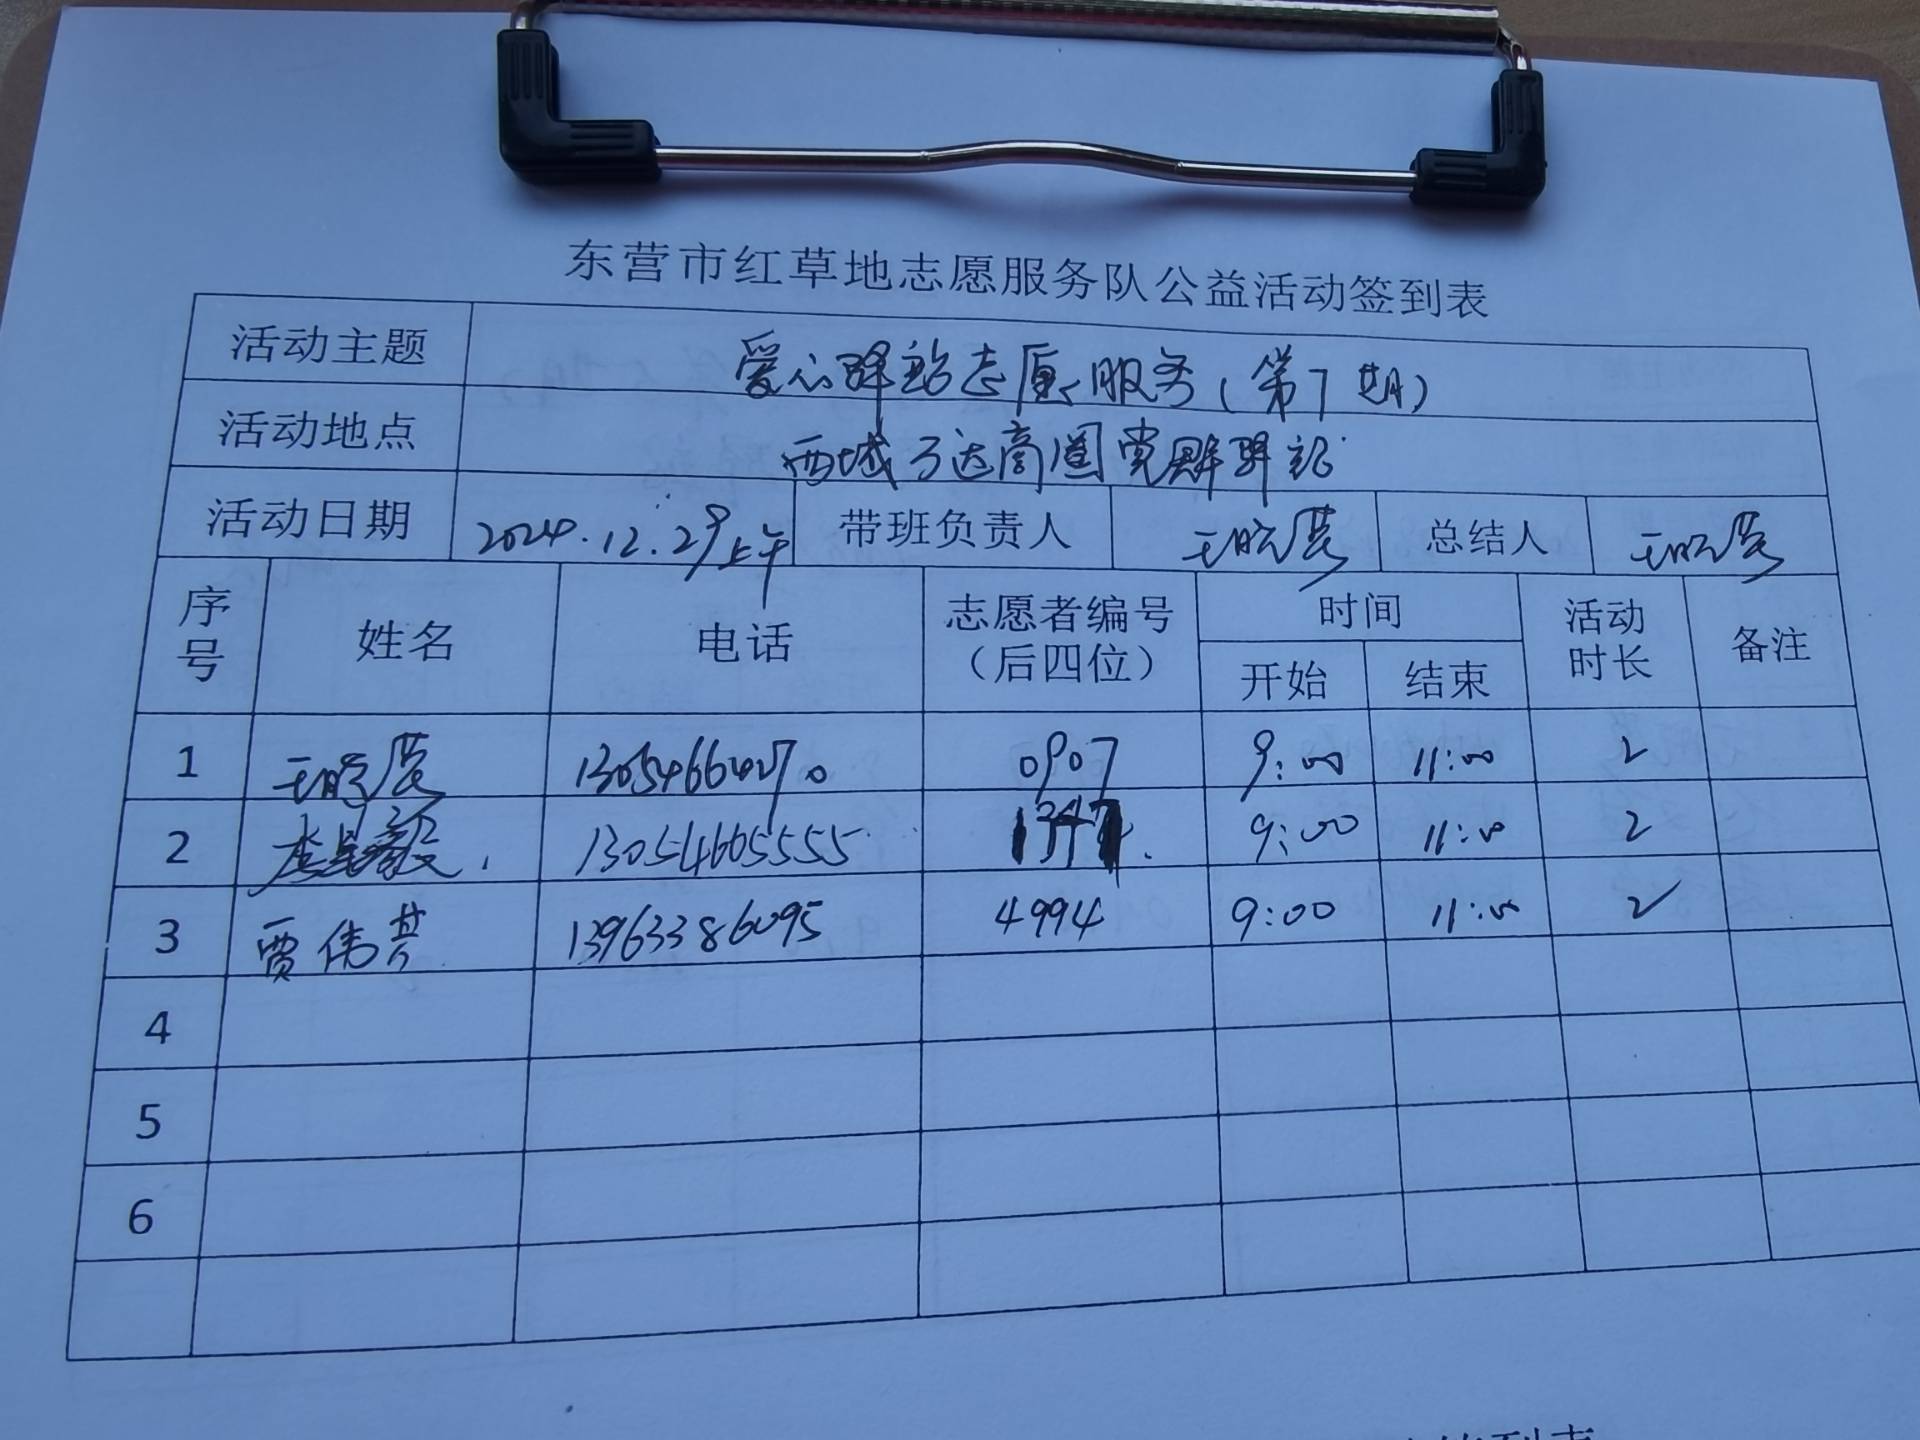 东营市红草地志愿服务队公益活动签到表
活动主题 爱心驿站志愿服务(第7期)
活动地点 西城万达商圈党群驿站
活动日期 2024.12.29上午 带班负责人 王晓营 总结人 王晓营
序号 姓名 电话 志愿者编号(后四位) 时间 开始 结束 活动时长 备注
1 王晓营 0907 9:00 11:00 2
2 13054605555 1347 9:00 11:00 2
3 贾伟芳 13963386095 4994 9:00 11:00 2
4
5
6
签到表